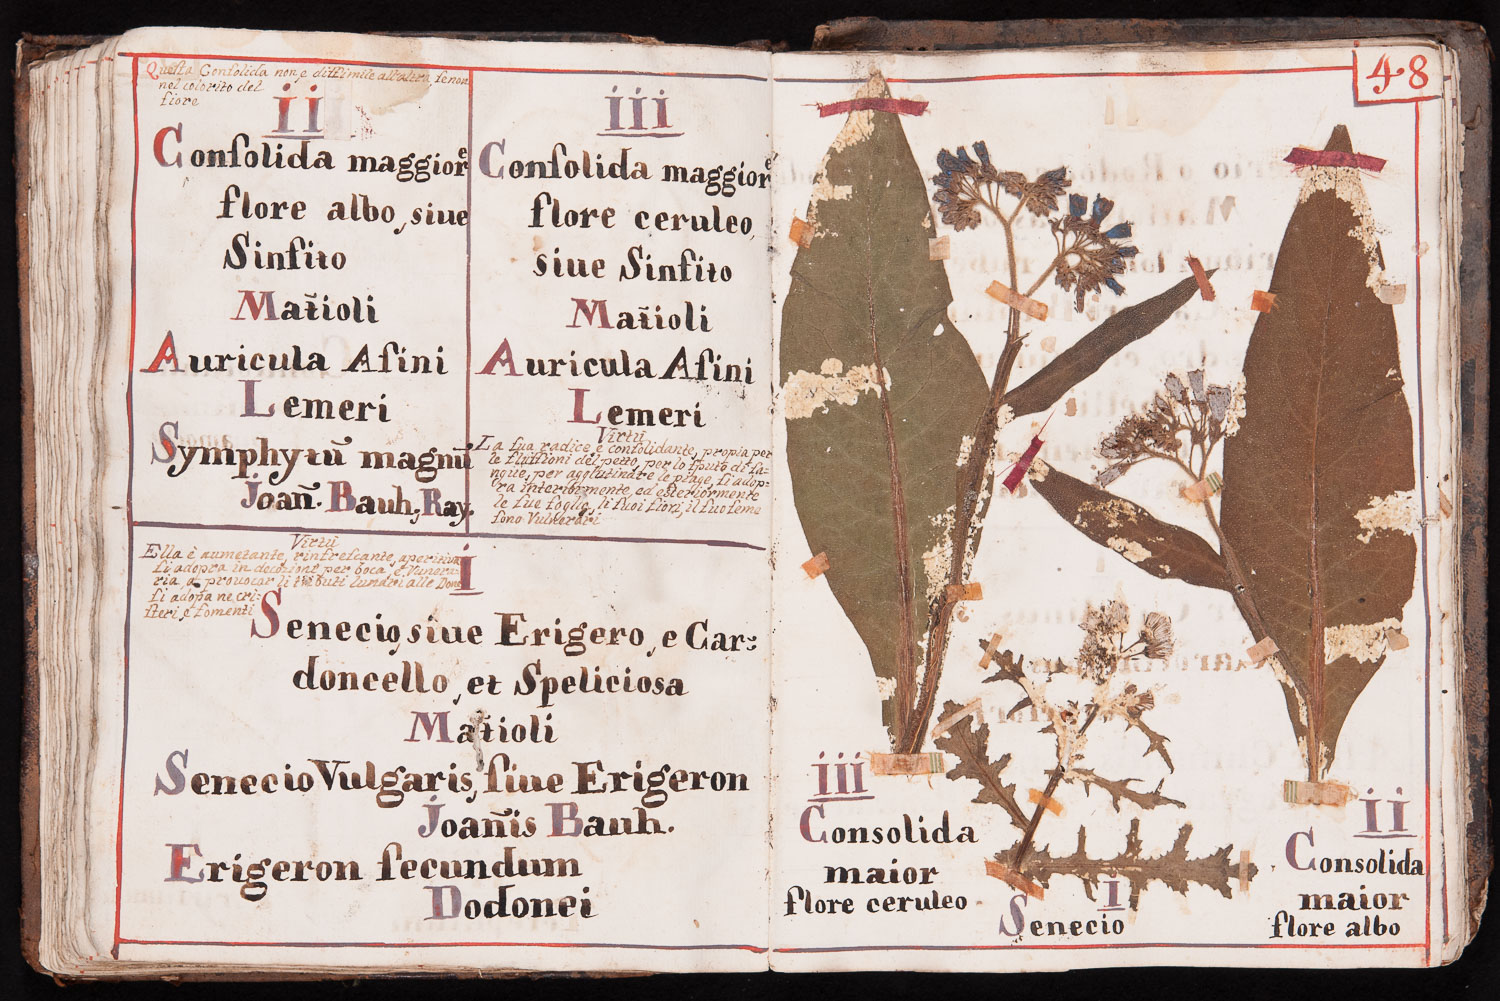 Questa Consolida non è dissimile all'altra, se non
nel colorito del
fiore
ii
Consolida maggiore
flore albo, siue
Sinfito
Matioli
Auricula Asini
Lemeri
Symphytū magnū
Joan̄. Bauh, Ray.
iii
Consolida maggiore
flore ceruleo,
siue Sinfito
Matioli
Auricula Asini
Lemeri
Virtù
La sua radice è consolidante, propia per
le flussioni del petto, per lo sputo di sa=
ngue, per agglutinare le piage, si adop=
ra interiormente, ed esteriormente
le sue foglie, li suoi fiori, il suo seme
sono Vulnerari
Virtù
Ella è aumetante, rinfrescante, aperitiua
si adopra in decozione per boca
ria a provocar li tributi lunari alle Done
si adopa ne cri=
steri e fomenti
i
Senecio, siue Erigero, e Car=
doncello, et Speliciosa
Matioli
Senecio Vulgaris, siue Erigeron
Joan̄is Bauh.
Erigeron secundum
Dodonei
48
iii
Consolida
maior
flore ceruleo
I
Senecio
ii
Consolida
maior
flore albo